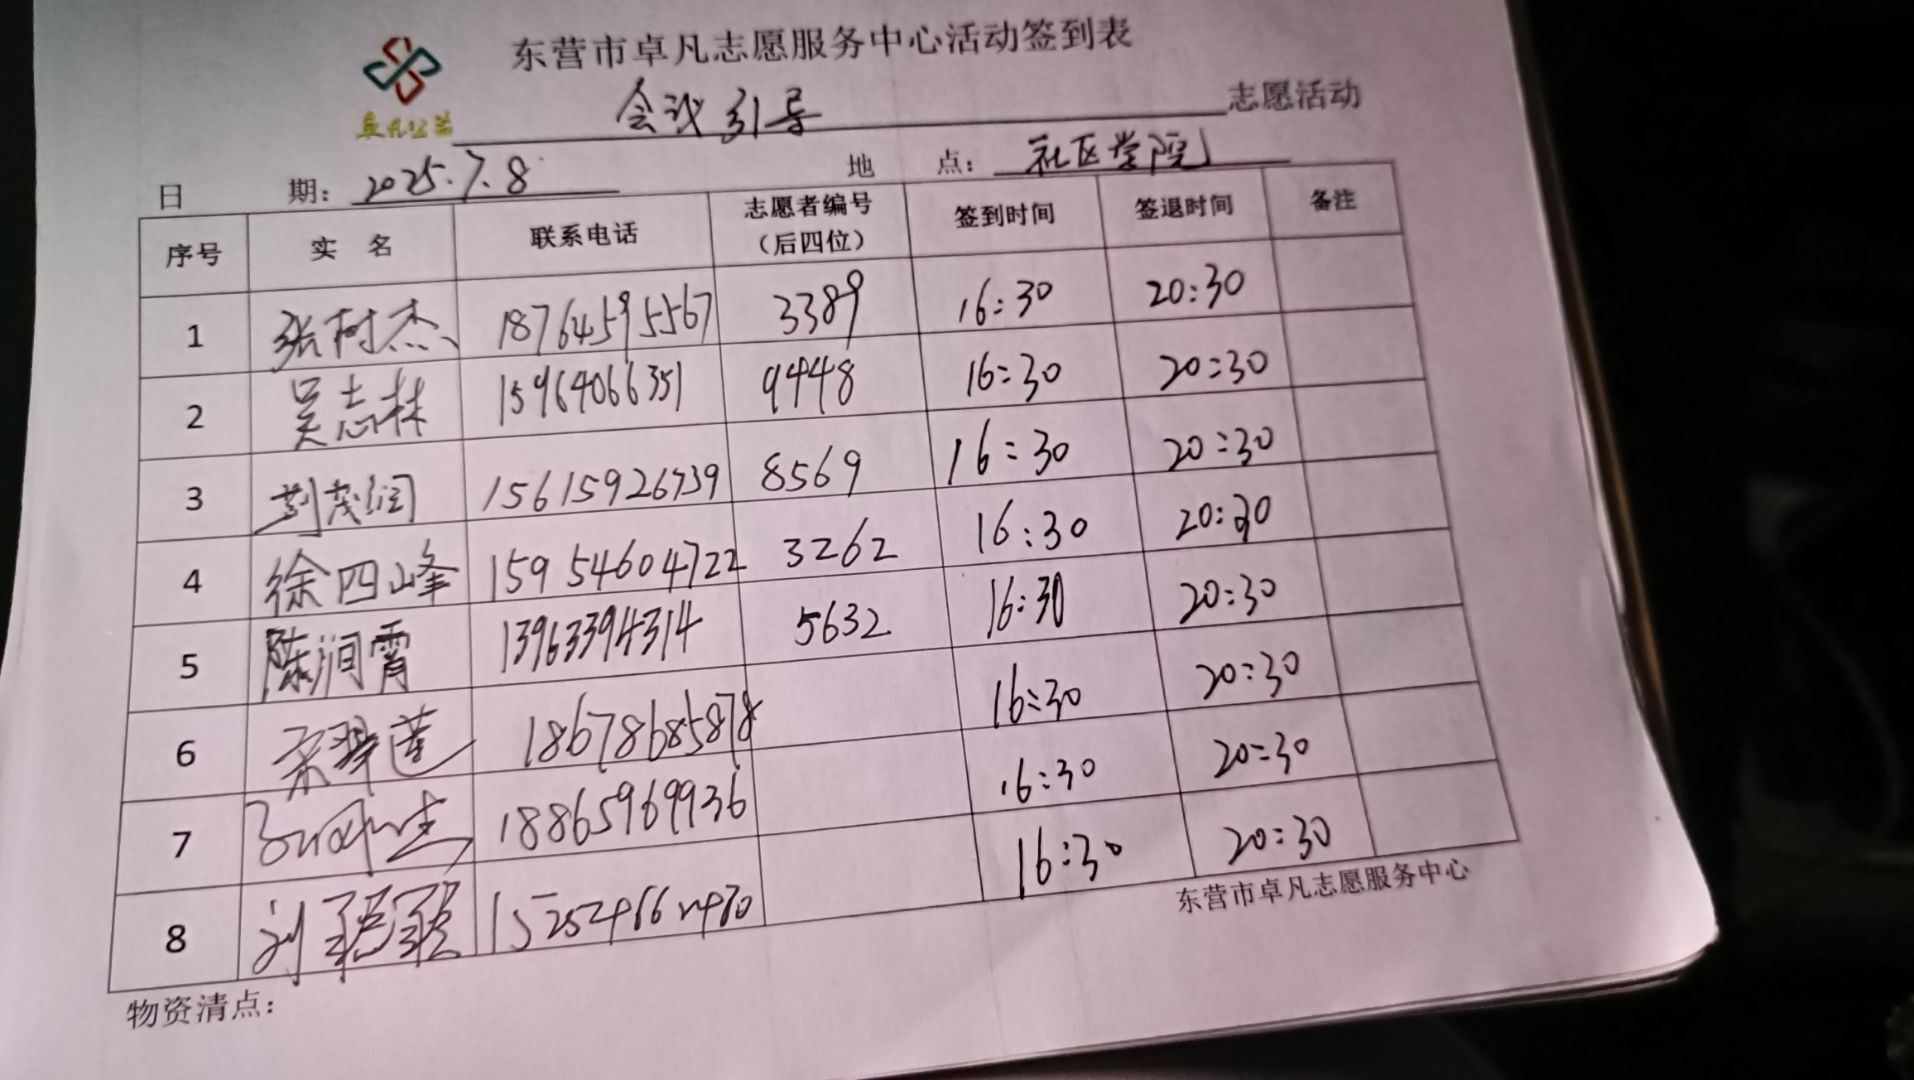 东营市卓凡志愿服务中心活动签到表
卓凡公益
会议引导 志愿活动
日 期: 2025.7.8 地 点: 社区学院
序号 实 名 联系电话 志愿者编号（后四位） 签到时间 签退时间 备注
1 张树杰 18764595567 3389 16:30 20:30
2 吴志林 15964066351 9448 16:30 20:30
3 荆茂润 15615926739 8569 16:30 20:30
4 徐四峰 15954604722 3262 16:30 20:30
5 陈润霄 13963394314 5632 16:30 20:30
6 18678685878 16:30 20:30
7 18865969936 16:30 20:30
8 刘 16:30 20:30
东营市卓凡志愿服务中心
物资清点: